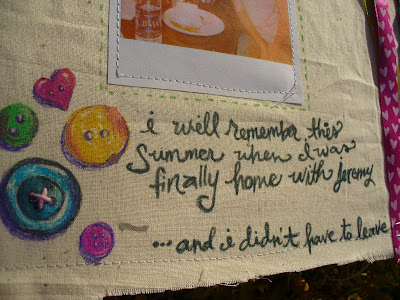 i will remember this
Summer when I was
finally home with jeremy
...and i didn't have to leave